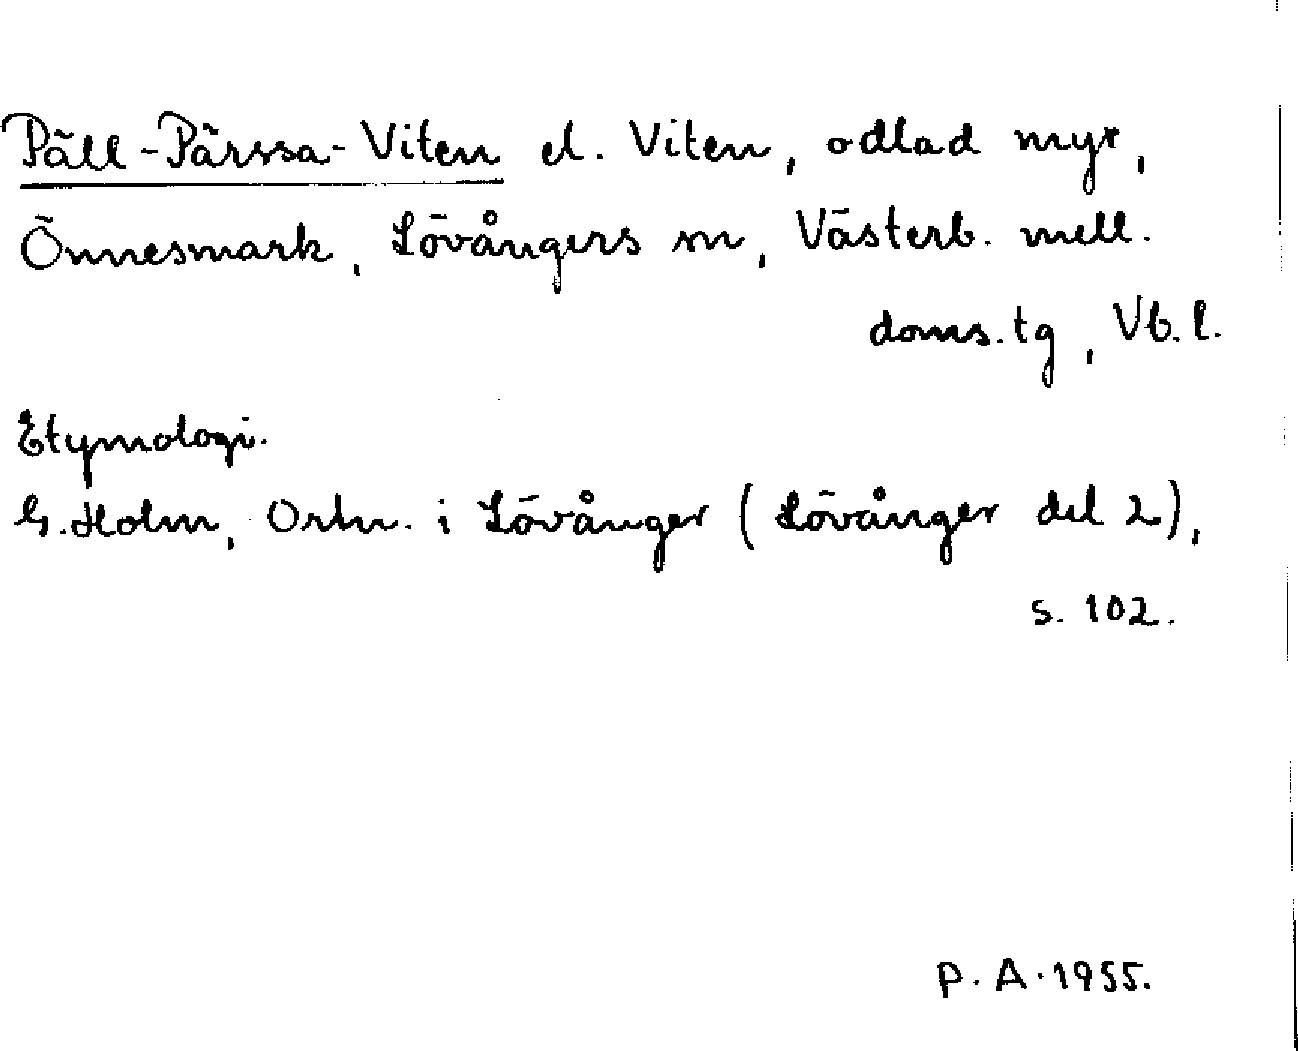 Päll-Pärssa-Viten el. Viten, odlad myr,
Önnesmark, Lövångers sn, Västerb. mell.
doms.tg, Vb. l.
Etymologi.
G. Holm, Ortn. i Lövånger (Lövånger del 2),
s. 102.
P. A. 1955.